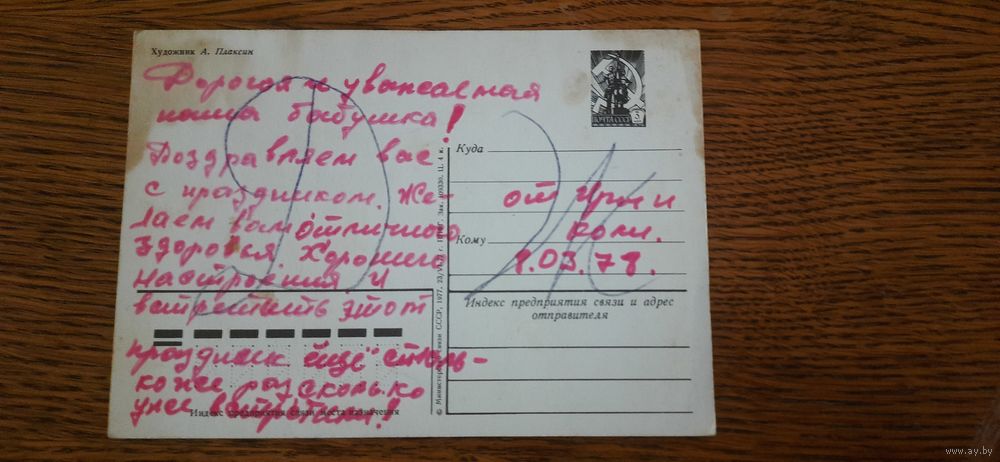 Художник А. Плаксин
Дорогая и уважаемая
наша бабушка!
Поздравляем вас
с праздником. Же-
лаем вам отличного
здоровья хорошего
настроения и
встретить этот
праздник ещё столь-
ко же раз сколько
уже встретили!
Индекс предприятия связи места назначения
© Министерство связи СССР, 1977.
ПОЧТА СССР
3
Куда
от Иры и
Коли.
Кому
8.03.78.
Индекс предприятия связи и адрес
отправителя
www.ay.by